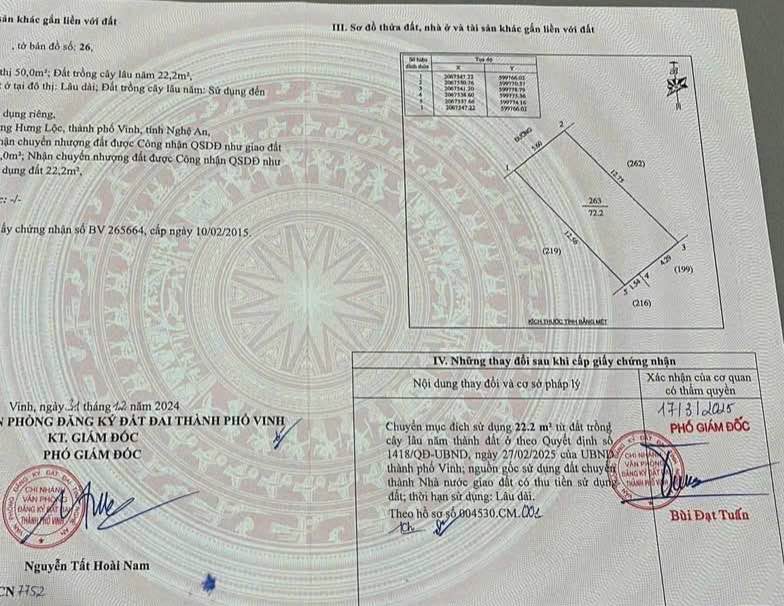 sản khác gắn liền với đất
, tờ bản đồ số: 26,
thị 50,0m²; Đất trồng cây lâu năm 22,2m²,
ở tại đô thị: Lâu dài; Đất trồng cây lâu năm: Sử dụng đến
dụng riêng.
ng Hưng Lộc, thành phố Vinh, tỉnh Nghệ An,
hận chuyển nhượng đất được Công nhận QSDĐ như giao đất
,0m²; Nhận chuyển nhượng đất được Công nhận QSDĐ như
dụng đất 22,2m²,
: -/-
ấy chứng nhận số BV 265664, cấp ngày 10/02/2015.
Vinh, ngày 31 tháng 12 năm 2024
N PHÒNG ĐĂNG KÝ ĐẤT ĐAI THÀNH PHỐ VINH
KT. GIÁM ĐỐC
PHÓ GIÁM ĐỐC
CHI NHÁNH
VĂN PHÒNG
ĐĂNG KÝ ĐẤT ĐAI
THÀNH PHỐ VINH
Nguyễn Tất Hoài Nam
CN 7752
III. Sơ đồ thửa đất, nhà ở và tài sản khác gắn liền với đất
Số hiệu đỉnh thửa
Tọa độ
X Y
1 2067547.22 599766.02
2
3
4
5
1 2067547.22 599766.02
ĐƯỜNG
5.60
1
2
12.75
(262)
263
72.2
12.56
(219)
3
4.29
(199)
4
1.54
5
(216)
KÍCH THƯỚC TÍNH BẰNG MÉT
IV. Những thay đổi sau khi cấp giấy chứng nhận
Nội dung thay đổi và cơ sở pháp lý
Xác nhận của cơ quan
có thẩm quyền
Chuyển mục đích sử dụng 22.2 m² từ đất trồng
cây lâu năm thành đất ở theo Quyết định số
1418/QĐ-UBND, ngày 27/02/2025 của UBND
thành phố Vinh; nguồn gốc sử dụng đất chuyển
thành Nhà nước giao đất có thu tiền sử dụng
đất; thời hạn sử dụng: Lâu dài.
Theo hồ sơ số 004530.CM.001
17/3/2025
PHÓ GIÁM ĐỐC
CHI NHÁNH
VĂN PHÒNG
ĐĂNG KÝ ĐẤT ĐAI
THÀNH PHỐ VINH
Bùi Đạt Tuấn